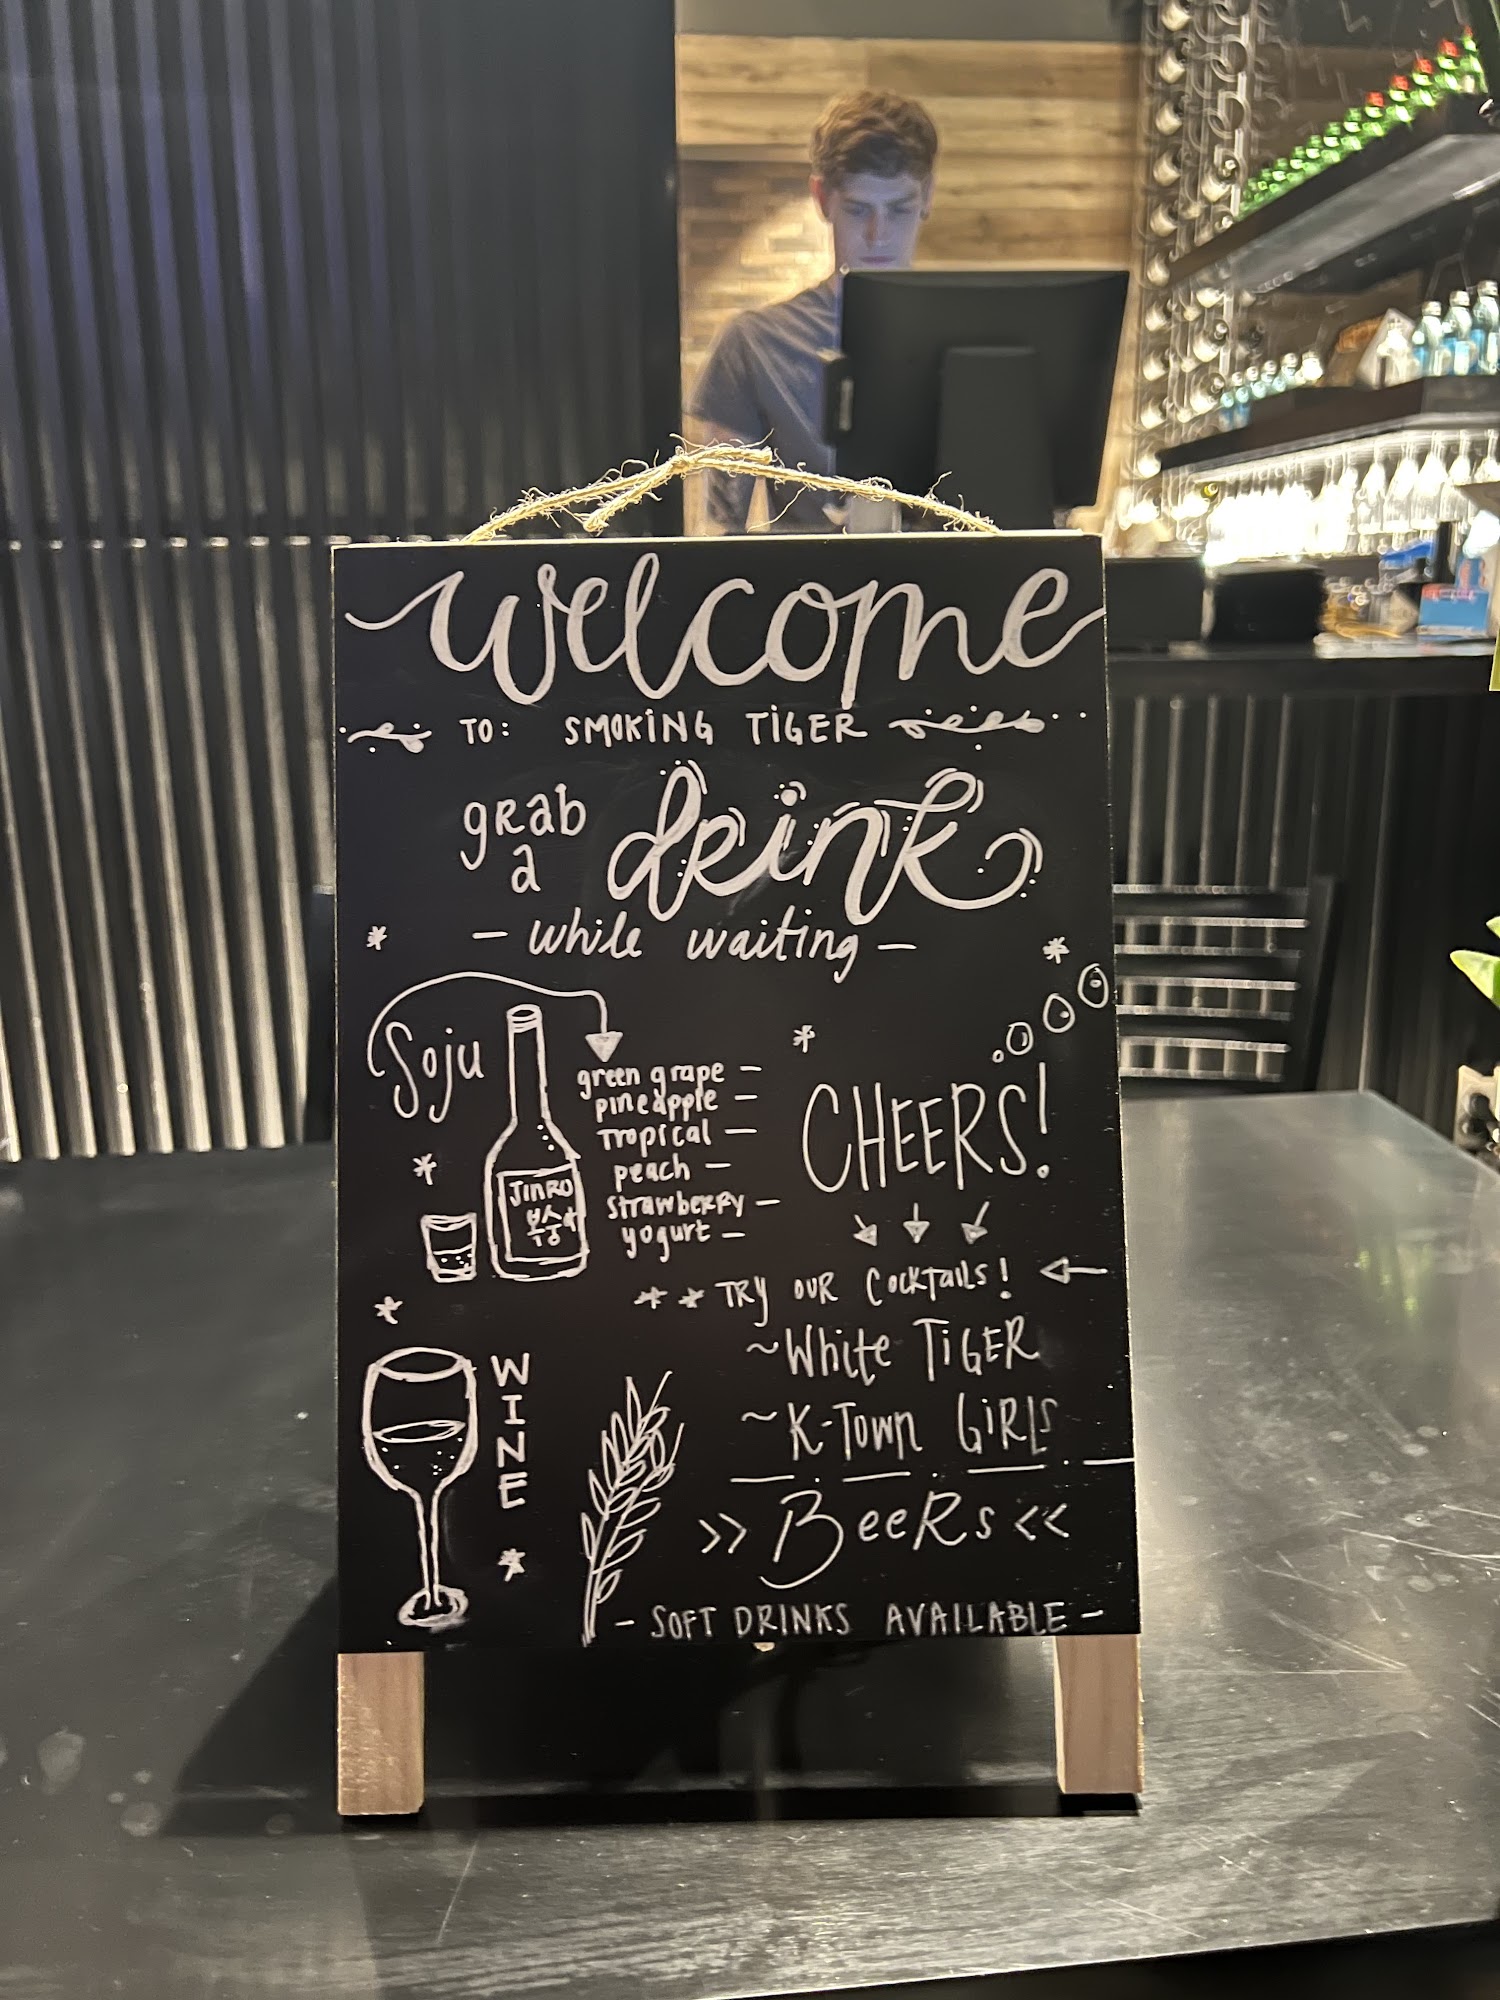 welcome
TO: SMOKING TIGER
grab
a drink
- while waiting -
Soju
green grape -
pineapple -
Tropical -
peach -
strawberry -
yogurt -
JINRO
CHEERS!
** TRY OUR COCKTAILS!
~White TIGER
~K-Town GIRLS
WINE
>> BeeRs <<
- SOFT DRINKS AVAILABLE -